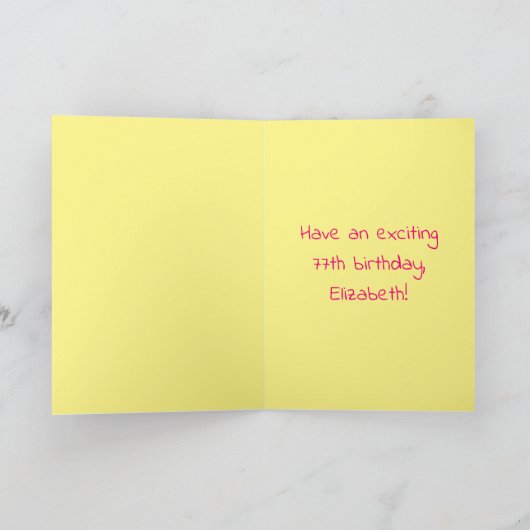 Have an exciting
77th birthday,
Elizabeth!